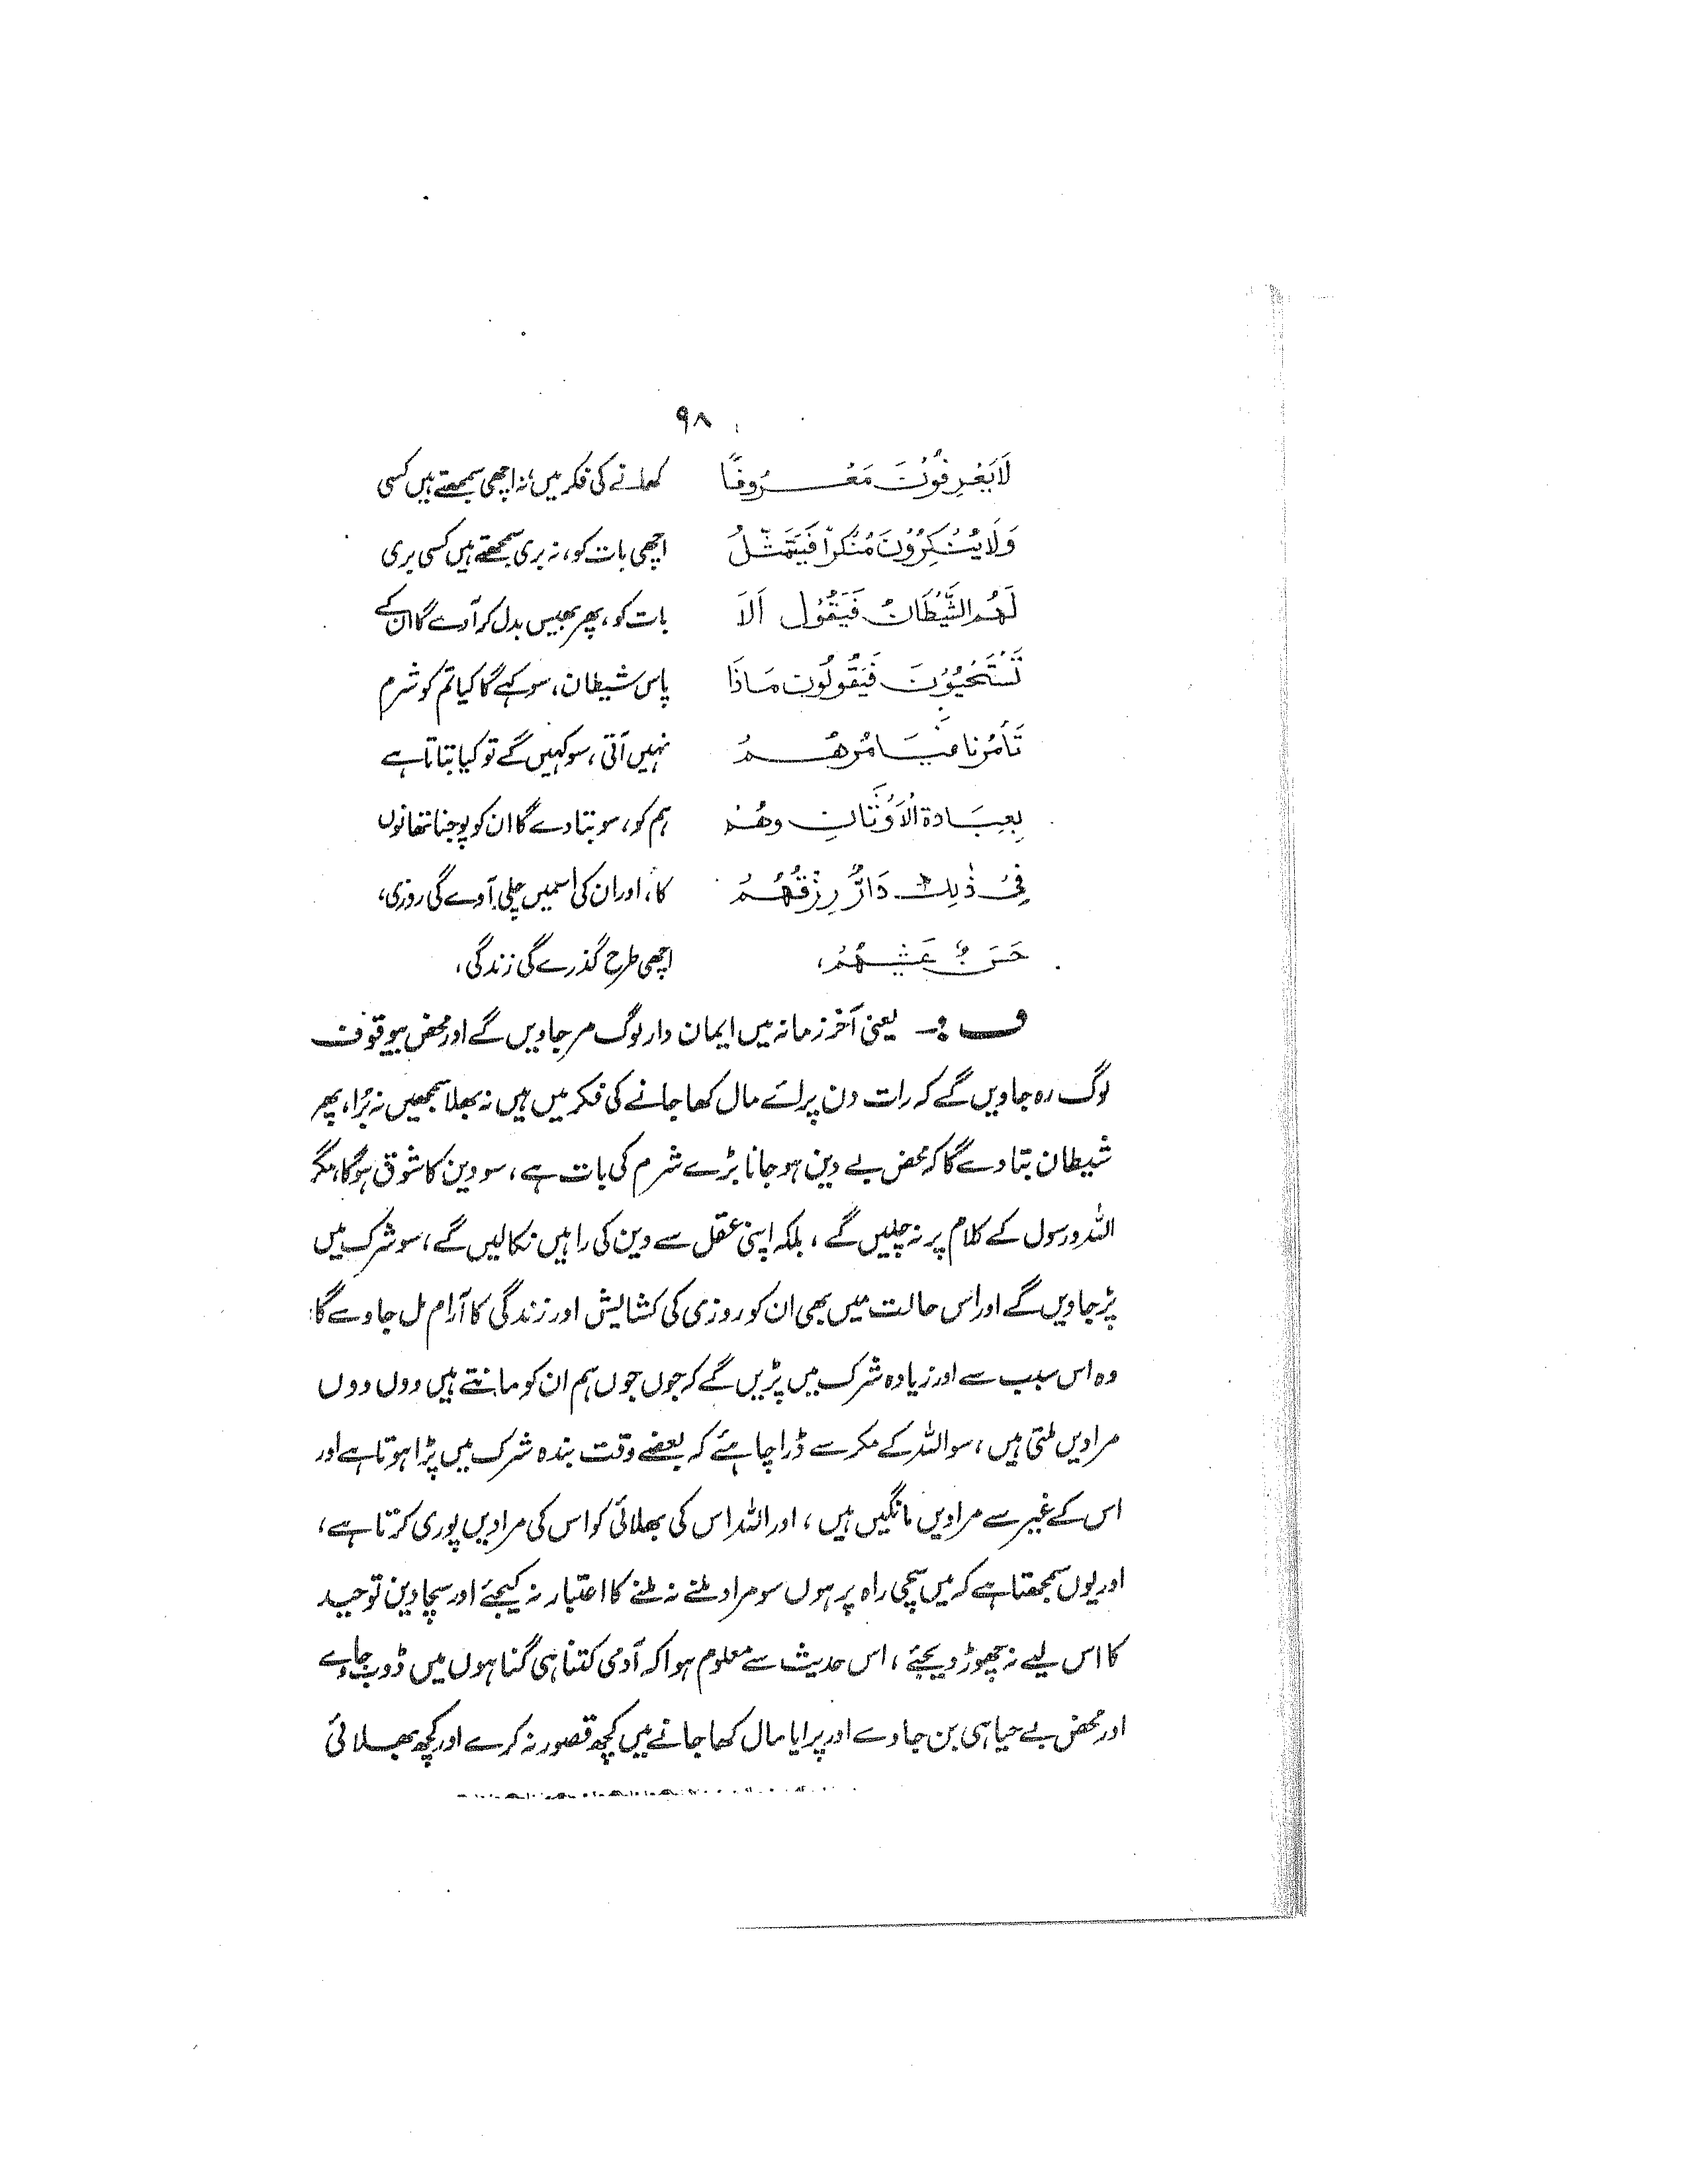 ۹۸
لَا يَعْرِفُوْنَ مَعْرُوفًا
وَلَا يُنْكِرُوْنَ مُنْكَرًا فَيَتَمَثَّلُ
لَهُمُ الشَّيْطَانُ فَيَقُوْلُ اَلَا
تَسْتَحْيُوْنَ فَيَقُولُونَ مَاذَا
تَأمُرُنَا فَيَامُرُهُمْ
بِعِبَادة الْاَوْثَانِ وهُمْ
فِيْ ذٰلِكَ دَارٌّ رِزْقُهُمْ
حَسَنٌ عَيْشُهُمْ،
کھانے کی فکر میں، نہ اچھی سمجھتے ہیں کسی
اچھی بات کو، نہ بری سمجھتے ہیں کسی بری
بات کو، پھر بھیس بدل کر آوے گا ان کے
پاس شیطان، سو کہے گا کیا تم کو شرم
نہیں آتی، سو کہیں گے تو کیا بتاتا ہے
ہم کو، سو بتادے گا ان کو پوجنا تھانوں
کا، اور ان کی اسمیں چلی آوے گی روزی،
اچھی طرح گذرے گی زندگی،
ف :۔ یعنی آخر زمانہ میں ایمان دار لوگ مر جاویں گے اور محض بیوقوف
لوگ رہ جاویں گے کہ رات دن پرائے مال کھا جانے کی فکر میں ہیں نہ بھلا سمجھیں نہ بُرا، پھر
شیطان بتا دے گا کہ محض بے دین ہو جانا بڑے شرم کی بات ہے، سو دین کا شوق ہوگا، مگر
اللہ و رسول کے کلام پر نہ چلیں گے، بلکہ اپنی عقل سے دین کی راہیں نکالیں گے، سو شرک میں
پڑ جاویں گے اور اس حالت میں بھی ان کو روزی کی کشایش اور زندگی کا آرام مل جاوے گا،
وہ اس سبب سے اور زیادہ شرک میں پڑیں گے کہ جوں جوں ہم ان کو مانتے ہیں ووں ووں
مرادیں ملتی ہیں، سو اللہ کے مکر سے ڈرا چاہئے کہ بعضے وقت بندہ شرک میں پڑا ہوتا ہے اور
اس کے غیر سے مرادیں مانگیں ہیں، اور اللہ اس کی بھلائی کو اس کی مرادیں پوری کرتا ہے،
اور یوں سمجھتا ہے کہ میں سچی راہ پر ہوں سو مراد ملنے نہ ملنے کا اعتبار نہ کیجئے اور سچا دین توحید
کا اس لیے نہ چھوڑ دیجئے، اس حدیث سے معلوم ہوا کہ آدمی کتنا ہی گناہوں میں ڈوب جاوے
اور محض بے حیا ہی بن جاوے اور پرایا مال کھا جانے میں کچھ قصور نہ کرے اور کچھ بھلائی